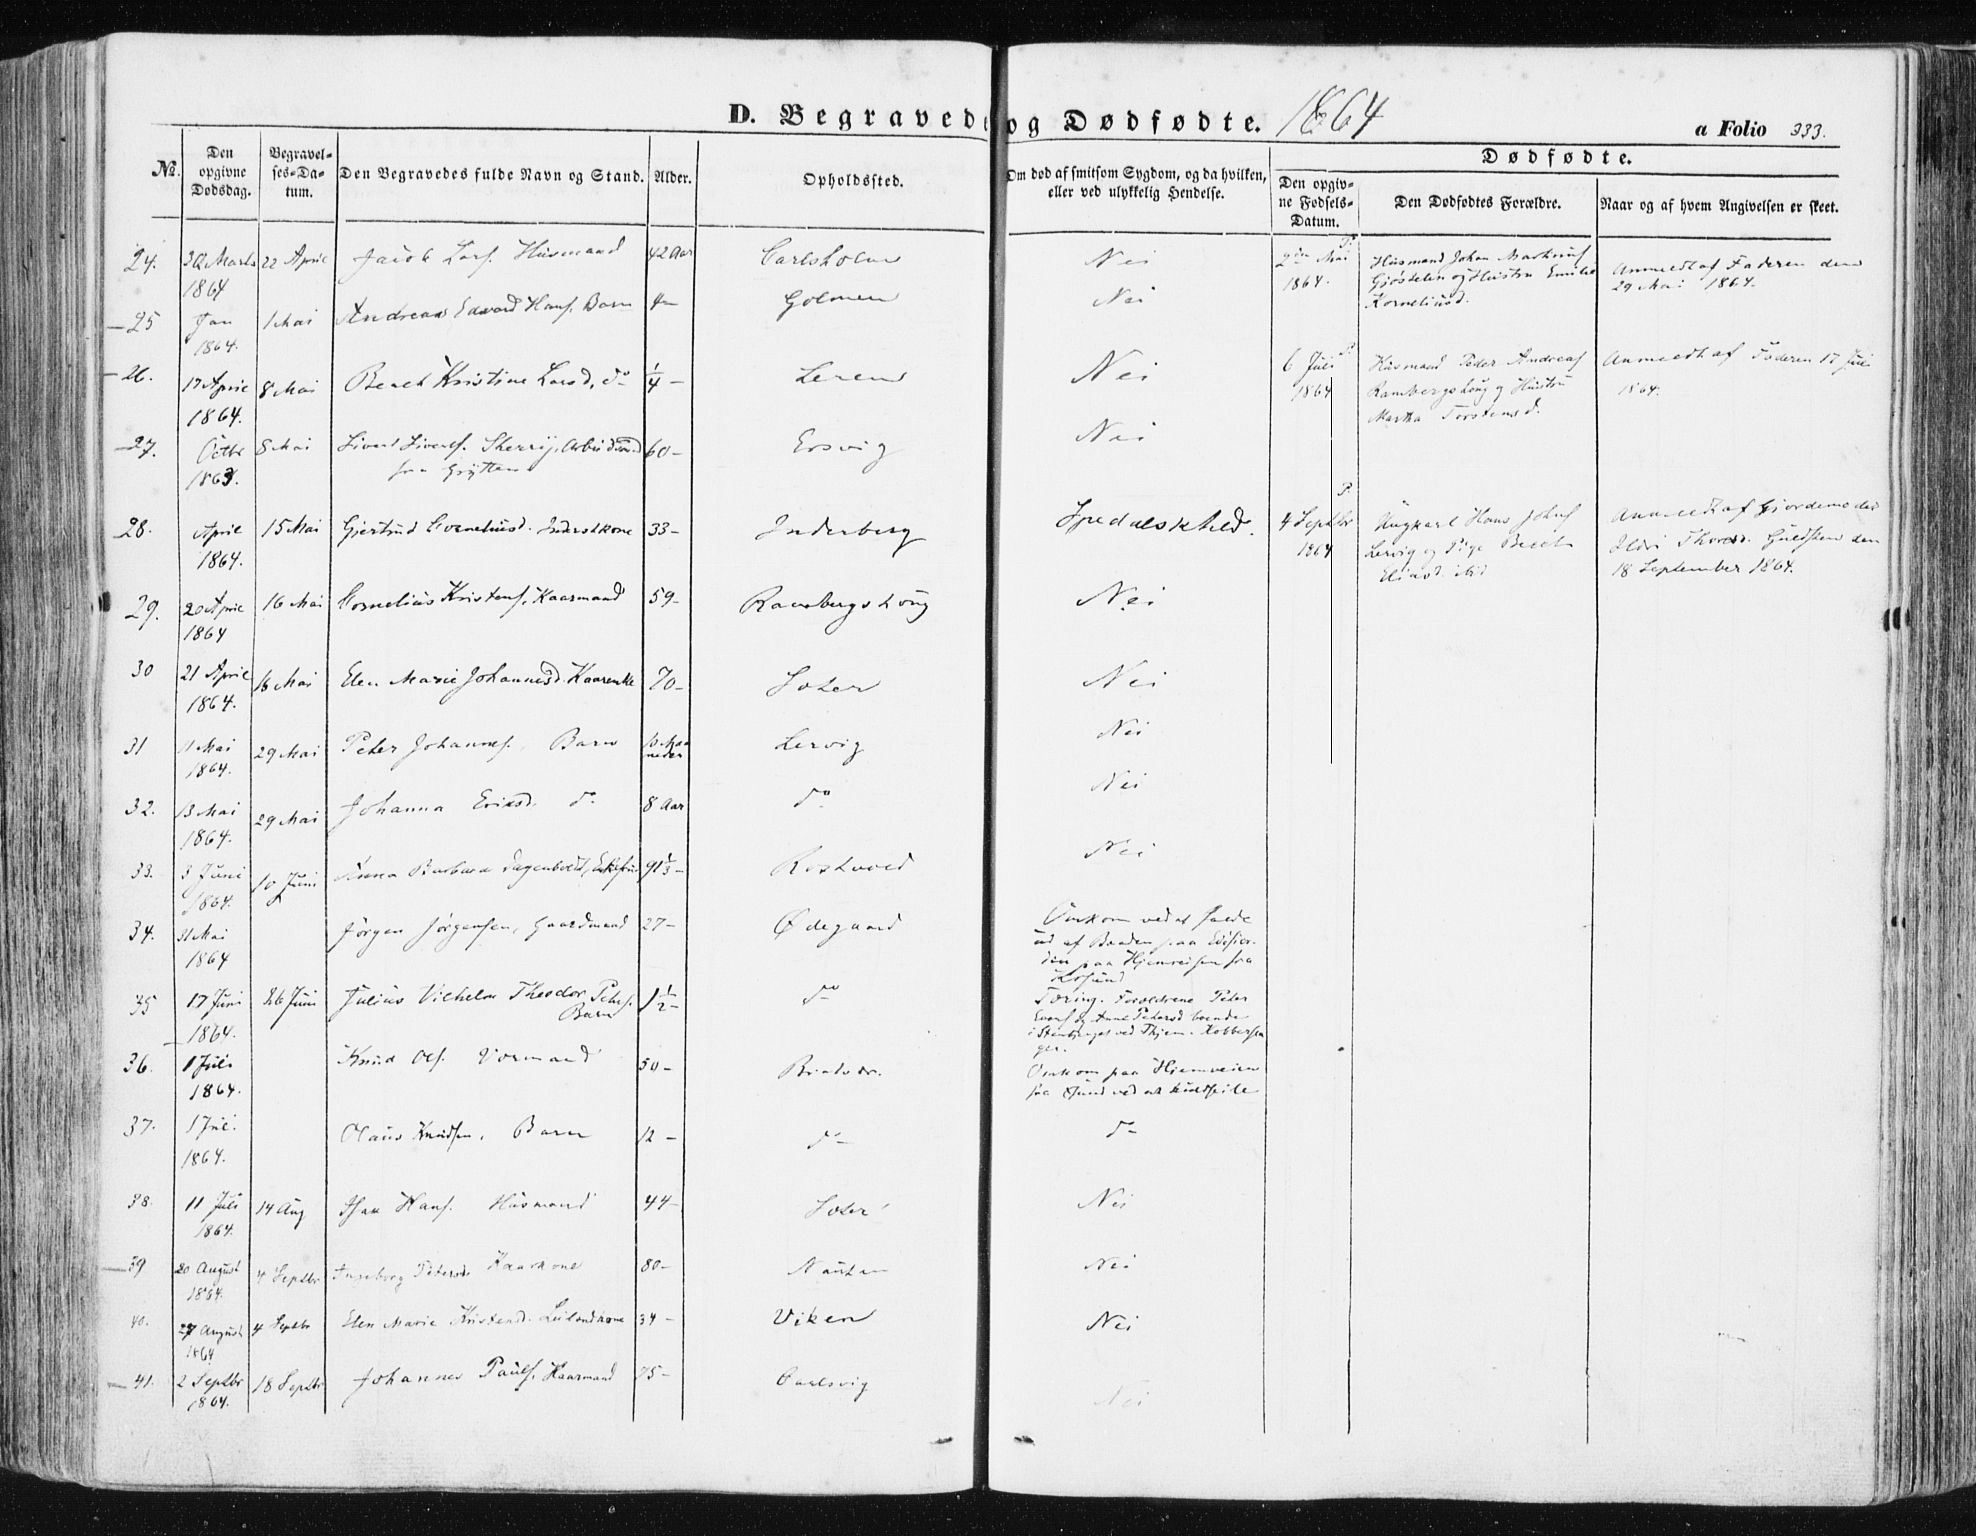 D. Begravede og Dødfødte. 1864
a Folio 333.
No. Den opgivne Dødsdag. Begravelses-Datum. Den Begravedes fulde Navn og Stand. Alder. Opholdssted. Om død af smitsom Sygdom, og da hvilken, eller ved ulykkelig Hendelse.
Dødfødte.
Den opgivne Fødsels-Datum. Den Dødfødtes Forældre. Naar og af hvem Angivelsen er skeet.
24. 30 Marts 1864 22 April Jacob Lars. Husmand 42 Aar Carlsholm Nei
25 Jan 1864. 1 Mai Andreas Edvard Hans. Barn 4 – Golmen Nei
26. 17 April 1864. 8 Mai Beret Kristine Larsd, do 1/4 – Lerem Nei
27. Octbr 1863. 8 Mai Sivert Siverts. fra Grytten 60 – Ersvig Nei
28. April 1864. 15 Mai Gjertrud Corneliusd. Inderstkone 33 – Inderberg Spedalskhed.
29. 20 April 1864 16 Mai Cornelius Kristens. Kaarmand 59 – Rambergshoug Nei
30 21 April 1864. 16 Mai Elen Marie Johannesd. Kaarenke 70 – Soter Nei
31 11 Mai 1864. 29 Mai Peter Johannes. Barn 10 Maaneder Lervig Nei
32. 13 Mai 1864. 29 Mai Johanna Eriksd. do 8 Aar do Nei
33. 3 Juni 1864. 10 Juni Anna Barbara 91 1/3 – Rostvold Nei
34. 31 Mai 1864 Jørgen Jørgensen, Gaardmand 27 – Ødegaard Omkom ved at falde
ud af Baaden paa
paa Hjemreisen fra
35 17 Juni 1864. 26 Juni Julius Vilhelm Theodor Peters. Barn 1 1/2 – do Tæring. Forældrene Peter
og Anne Petersd boende
36. 1 Juli 1864. Knud Ols. 50 – Omkom paa Hjemveien
37. 1 Juli 1864. Olaus Knudsen, Barn 12 – do do
38. 11 Juli 1864. 14 Aug Isak Hans. Husmand 44 – Soter Nei
39 20 August 1864. 4 Septbr Ingeborg Petersd. Kaarkone 80 – Nei
40. 27 August 1864 4 Septbr Elen Marie Kristensd. Leilendkone 34 – Viken Nei
41. 2 Septbr 1864. 18 Septbr Johannes Pauls. Kaarmand 75 – Carlsvig Nei
2den Mai 1864. Husmand Johan
og Hustru Emilie
Korneliusd.
Anmeldt af Faderen den
29 Mai 1864.
6 Juli 1864 Husmand Peder Andreas
Rambergshoug og Hustru
Martha Torstensd.
Anmeldt af Faderen 17 Juli
1864.
4 Septbr 1864 Ungkarl Hans Johns
Lervig og Pige Beret
Eliasd. ibid
Anmeldt af Gjordemoder
den
18 September 1864.